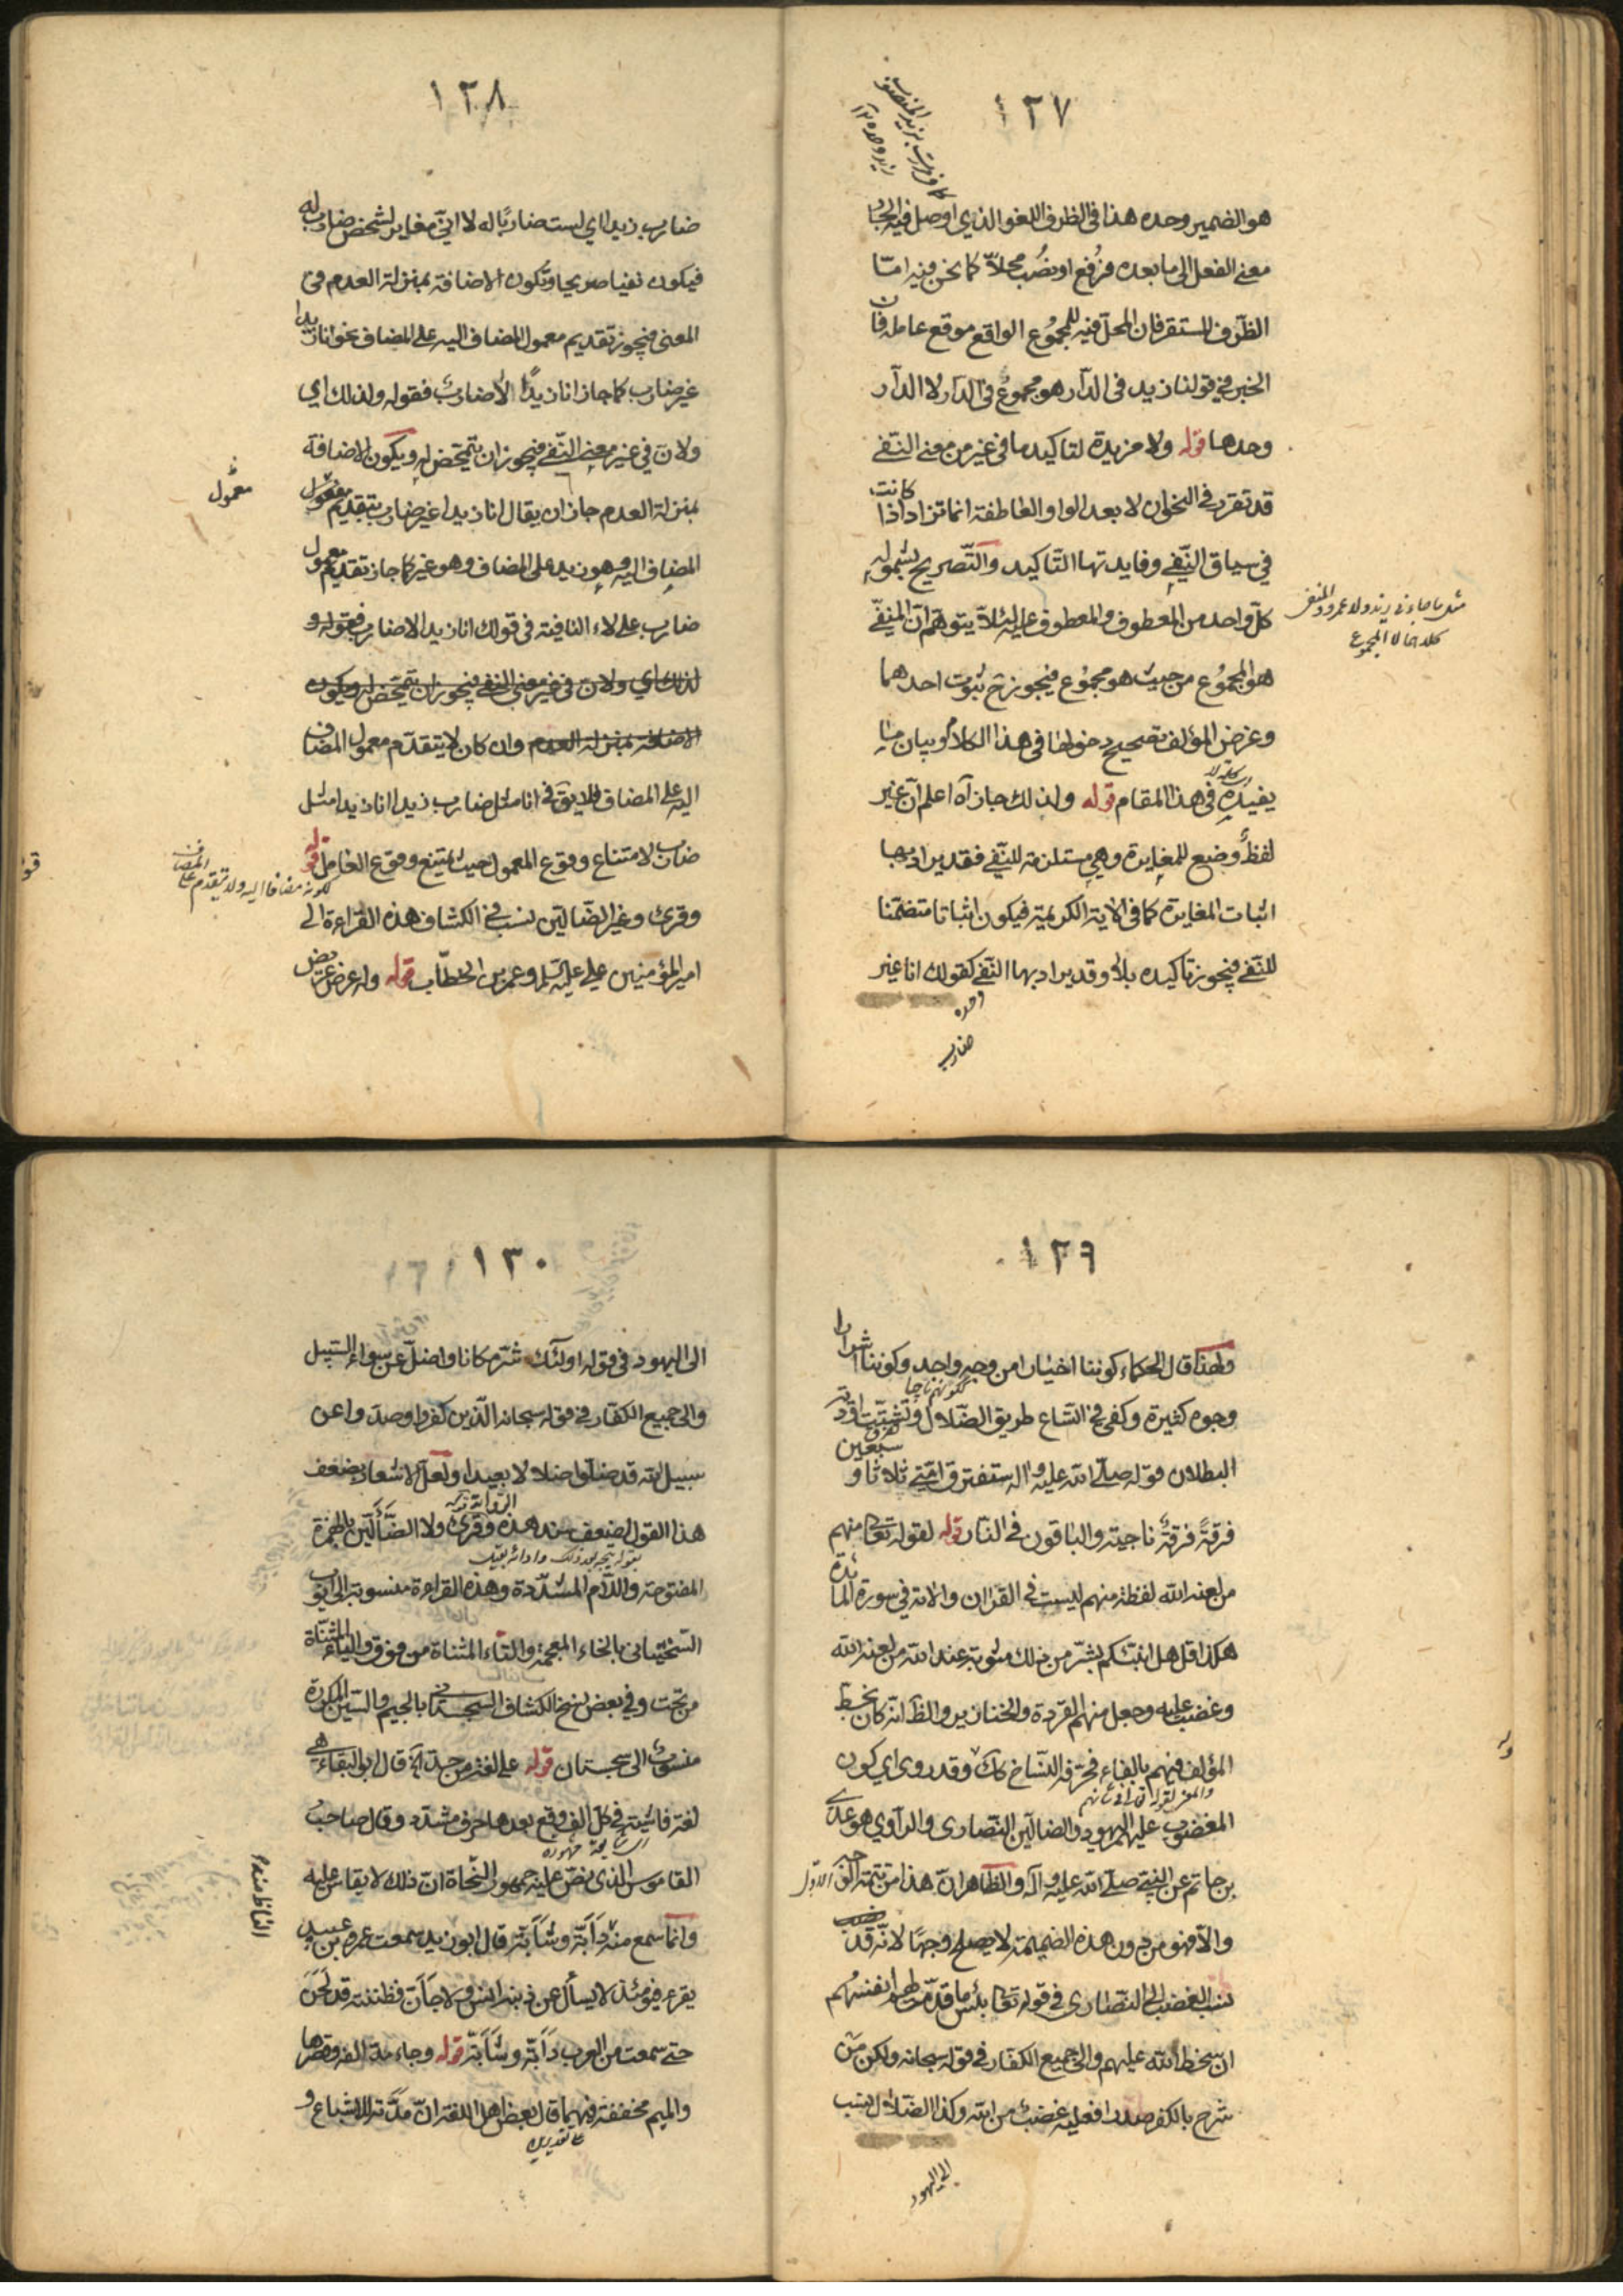 ١٢٧
هو الضمير وحده هذا في الظرف اللغو الذي اوصل فيه الجار
معنى الفعل الى ما بعده فرُفع او نصُب محلاّ كما نحن فيه امّا
الظرف المستقر فان المحلّ فيه للمجمُوع الواقع موقع عامله فان
الخبر في قولنا زيد في الدّار هو مجموعُ في الدّار لا الدّار
وحدها قوله ولا مزيدة لتاكيد ما في غير من معنى النّفي
قد تقرر في النحو ان لا بعد الواو العاطفة انما تزاد اذا كانت
في سياق النّفي وفايدتها التّاكيد والتّصريح بشموله
كلّ واحد من المعطوف والمعطوف عليه لئلاّ يتوهّم انّ المنفيّ
هو المجمُوع من حيث هو مجمُوع فيجوز ح ثبُوت احدهما
وغرض المؤلف تصحيح دخولها في هذا الكلام وبيان ما
يفيده في هذا المقام قوله ولذلك جاز آه اعلم انّ غير
كلمة لا
لفظُ وضع للمغايرة وهي مستلزمة للنّفي فقد يراد بها
اثبات المغايرة كما في الآية الكريمة فيكون اثباتا متضمّنا
للنّفي فيجوز تاكيده بلا وقد يراد بها النّفي كقولك انا غير
وحده
ضارب
مثل ما جاءني زيد ولا عمرو والمنفي
كلاهما لا المجموع
١٢٨
ضارب زيدا اي لست ضاربًا له لا انّي مغاير لشخص ضارب له
فيكون نفيا صريحا وتكون الاضافة بمنزلة العدم في
المعنى فيجوز تقديم معمول المضاف اليه على المضاف نحو انا زيدا
غير ضارب كما جاز انا زيدًا لا ضاربُ فقوله ولذلك اي
ولان في غير معنى النّفي فيجوز ان يتمحّض له ويكون الاضافة
بمنزلة العدم جاز ان يقال انا زيدا غير ضارب بتقديم مفعول
معمُول
المضاف اليه وهو زيد على المضاف وهو غير كما جاز تقديم معمول
ضارب على لاء النافية في قولك انا زيد الا ضارب فقوله و
لذلك اي ولان في غير معنى النفي فيجوز ان يتمحّض له ويكون
الاضافة بمنزلة العدم وان كان لا يتقدّم معمول المضاف
اليه على المضاف فلا يق في انا مثل ضارب زيدا انا زيدا مثل
ضارب لامتناع وقوع المعمول حيث يمتنع وقوع العامل قوله
لكونه مضافا اليه ولا يتقدم على المضاف
وقرئ وغير الضّالّين نسب في الكشاف هذه القراءة الى
امير المؤمنين علي عليه السّلم وعمر بن الخطّاب قوله وله عرض عريض
١٢٩
ولهذا قال الحكماء كوننا اخيارا من وجه واحد وكوننا اشرارا
وجوه كثيرة وكفى في اتّساع طريق الضّلال وتشتّت
البطلان قوله صلّى الله عليه واله ستفترق امّتي ثلاثا و سبعين
فرقةً فرقةٌ ناجية والباقون في النّار قوله لقوله تعالى منهم
من لعنه الله لفظة منهم ليست في القرآن والآية في سورة المائدة
هكذا قل هل انبّئكم بشرّ من ذلك مثوبة عند الله من لعنه الله
وغضب عليه وجعل منهم القردة والخنازير والظّ انّه كان بخط
المؤلف فيهم بالفاء فحرّفه النّساخ قوله وقد روى اي كون
المغضوب عليهم اليهود والضالّين النّصارى والرّاوي هو عديّ
بن حاتم عن النبّي صلّى الله عليه وآله والظّاهر انّ هذا من تتمّة الاوّل
والّا فهو من دون هذه الضميمة لا يصلح وجهًا لانّه قد
نسب الغضب الى النّصارى في قوله تعالى بئس ما قدّمت لهم انفسهُم
ان سخط الله عليهم والى جميع الكفّار في قوله سبحانه ولكن من
شرح بالكفر صدرا فعليه غضبُ من الله وكذا الضّلال نسب
الى اليهود
١٣٠
الى اليهود في قوله اولئك شرّ مكانا واضلّ عن سواء السّبيل
والى جميع الكفّار في قوله سبحانه الّذين كفروا وصدّوا عن
سبيل الله قد ضلّوا ضلالا بعيدا ولعلّ الاشعار بضعف
هذا القول لضعف سند هذه الرّواية قوله وقرئ ولا الضَّأَلِّين بالهمزة
المفتوحة واللّام المشدّدة وهذه القراءة منسوبة الى ايّوب
السّختياني بالخاء المعجمة والتّاء المثناة من فوق والياء المثنّاة
من تحت وفي بعض نسخ الكشاف السجستاني بالجيم والسّين المكسورة
منسوبُ الى سجستان قوله على لغة من جدّ اهَ قال ابو البقاء هي
لغة فاشية في كلّ الف وقع بعدها حرف مشدّد وقال صاحبُ
القاموس الّذي نصّ عليه جمهور النّحاة انّ ذلك لا يقاس عليه
وانّما سمع منه دَأَبّة وشَأَبّة قال ابو زيد سمعت عمرو بن عبيد
الفاظ منه
يقرء فيومئذ لا يسأل عن ذنبه انس ولا جَأَنّ فظننته قد لَحَنَ
حتى سمعت من العرب دَأَبّة وشَأَبّة قوله وجاء مدّ الفه وقصرها
والميم مخففة فيهما قال بعض اهل اللغة انّ مدّته للاشباع و